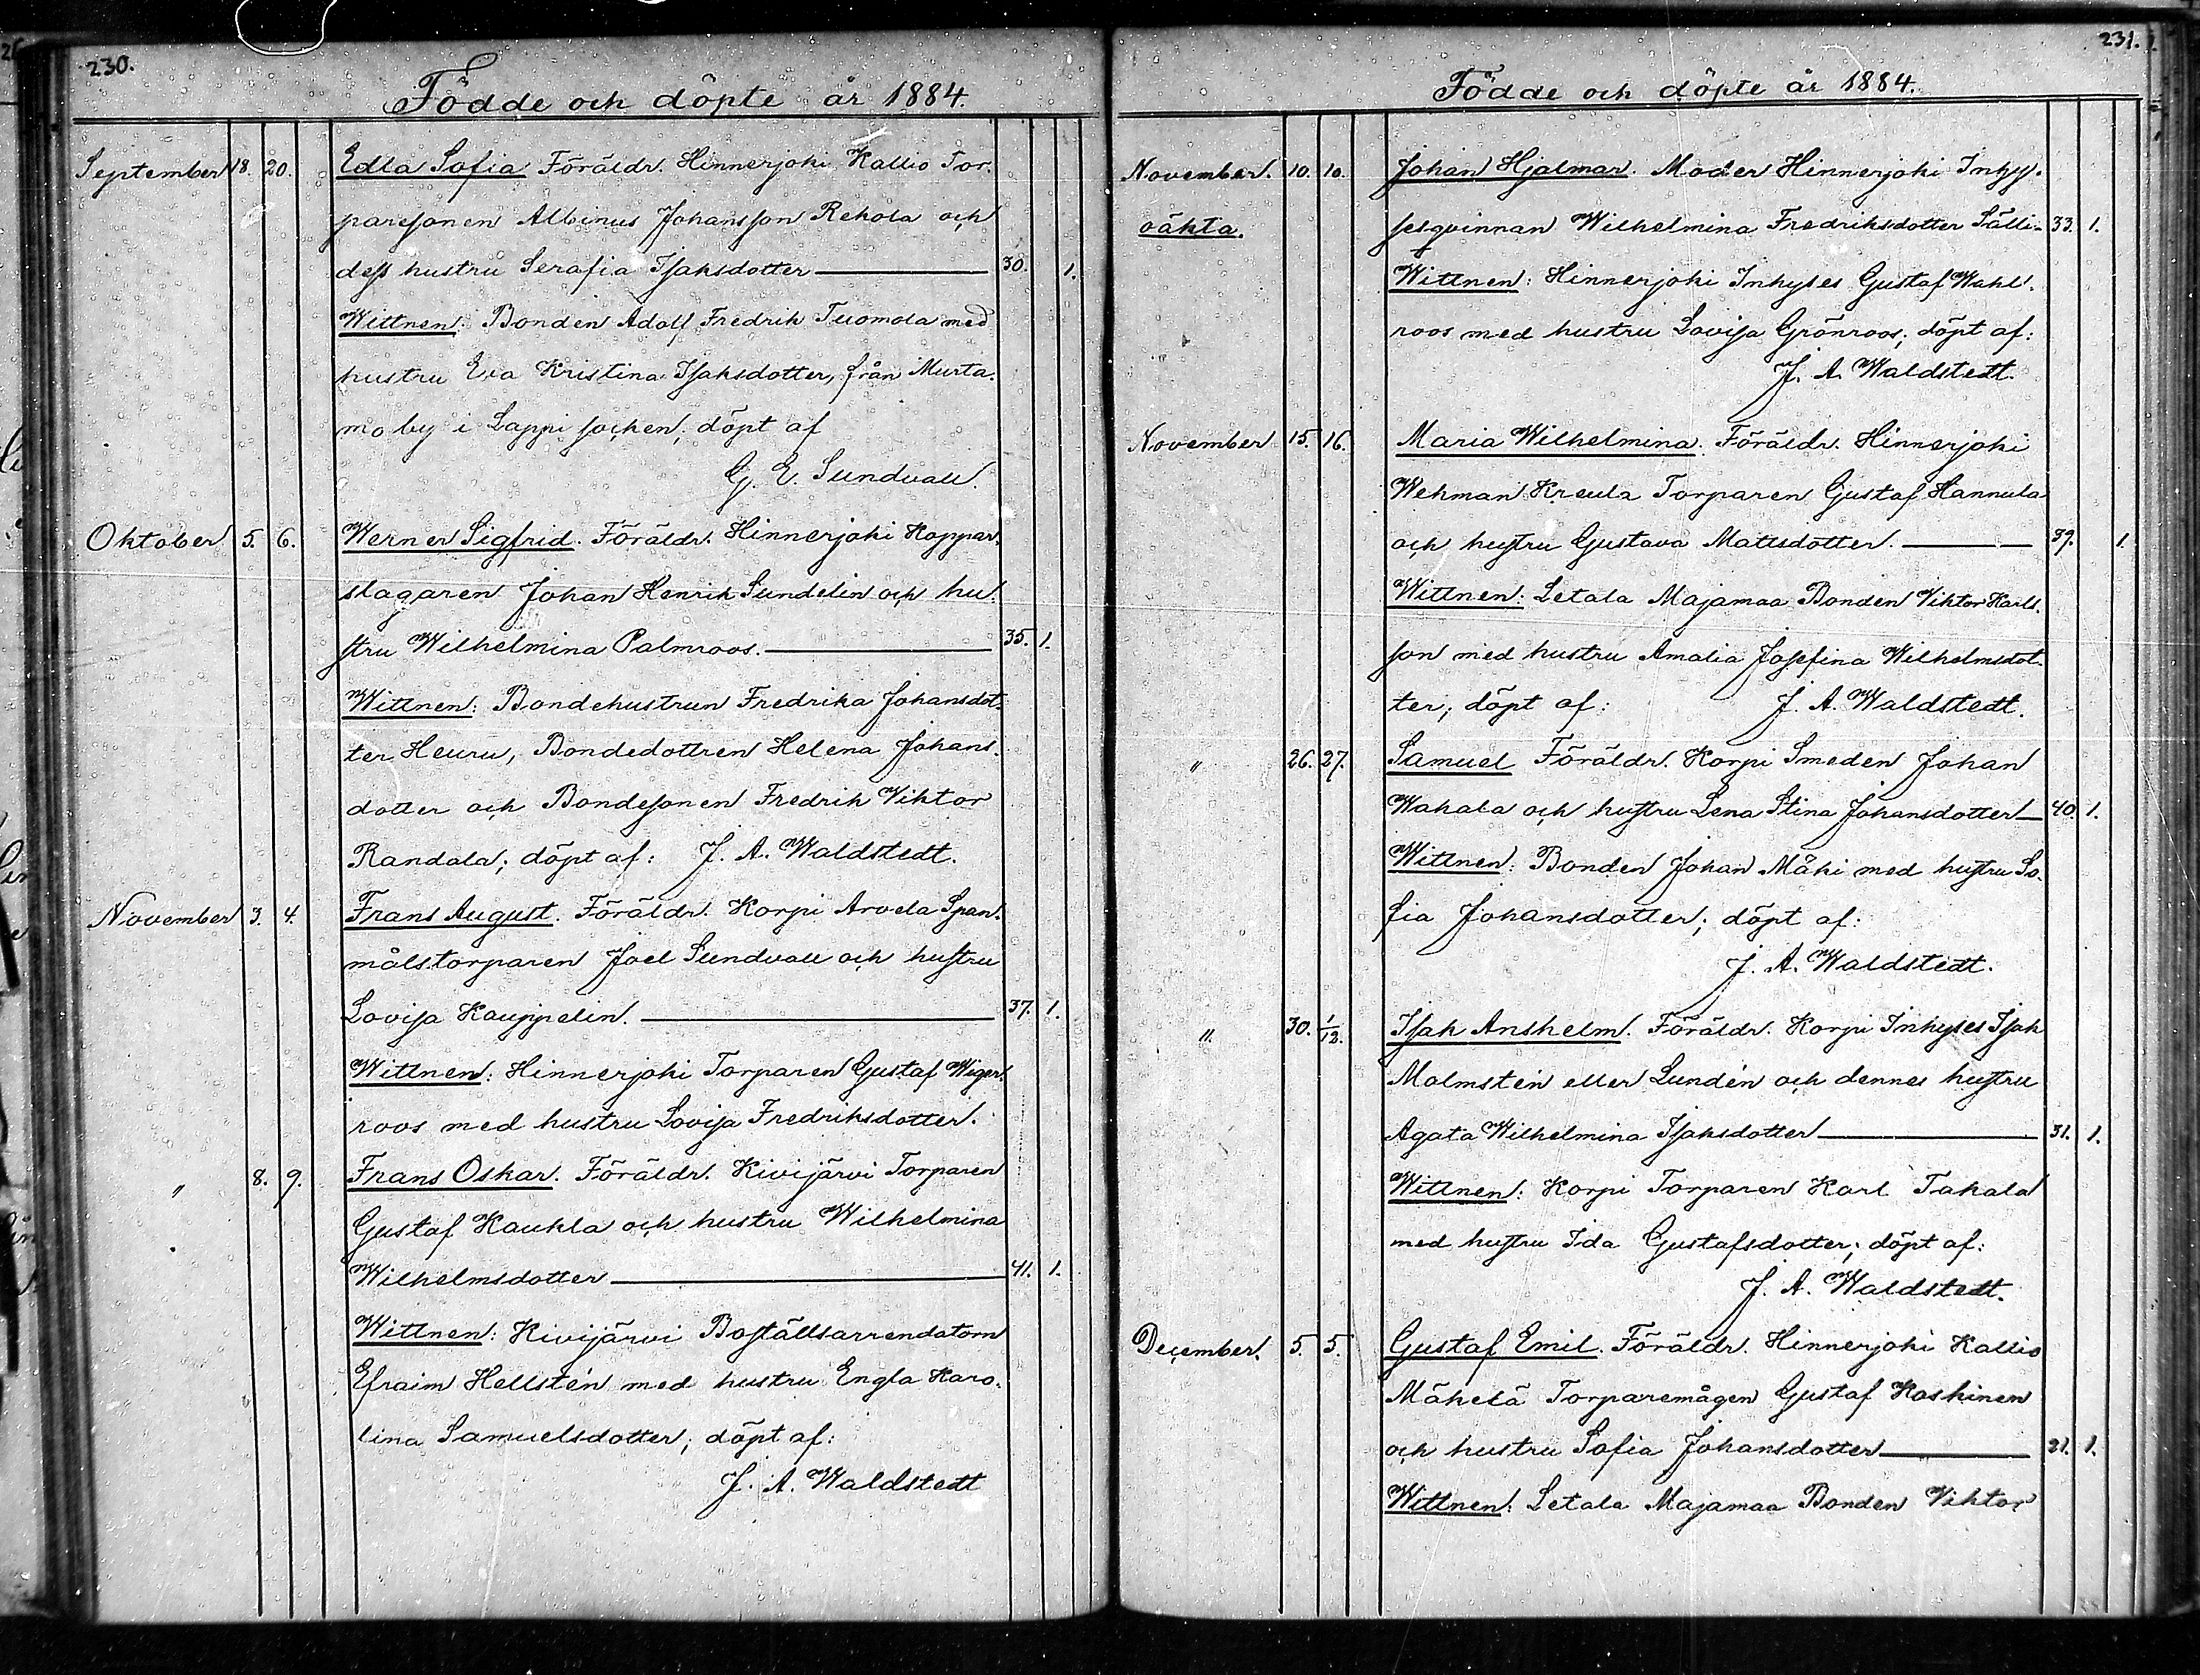 230.
Födde och döpte år 1884.
September 18. 20. Edla Sofia Föräldr. Hinnerjoki Kallio Tor-
paresonen Albinus Johansson Rekola och
dess hustru Serafia Isaksdotter — 30. 1.
Wittnen: Bonden Adolf Fredrik Tuomola med
hustru Eva Kristina Isaksdotter, från Murta-
mo by i Lappi socken; döpt af
G. E. Sundvall.
Oktober 5. 6. Werner Sigfrid. Föräldr. Hinnerjoki Koppar-
slagaren Johan Henrik Sundelin och hu-
stru Wilhelmina Palmroos. — 35. 1.
Wittnen: Bondehustrun Fredrika Johansdot-
ter Heuru, Bondedottren Helena Johans-
dotter och Bondesonen Fredrik Viktor
Randala; döpt af: J. A. Waldstedt.
November 3. 4. Frans August. Föräldr. Korpi Arvela Span-
målstorparen Joel Sundvall och hustru
Lovisa Kauppelin. — 37. 1.
Wittnen: Hinnerjoki Torparen Gustaf Wiger-
roos med hustru Lovisa Fredriksdotter.
" 8. 9. Frans Oskar. Föräldr. Kivijärvi Torparen
Gustaf Kaukla och hustru Wilhelmina
Wilhelmsdotter — 41. 1.
Wittnen: Kivijärvi Boställsarrendatorn
Efraim Hellstén med hustru Engla Karo-
lina Samuelsdotter; döpt af:
J. A. Waldstedt
231.
Födde och döpte år 1884.
November. 10. 10. Johan Hjalmar. Moder Hinnerjoki Inhy-
oäkta. sesqvinnan Wilhelmina Fredriksdotter Sälli- 33. 1.
Wittnen: Hinnerjoki Inhyses Gustaf Wahl-
roos med hustru Lovisa Grönroos; döpt af:
J. A. Waldstedt.
November 15. 16. Maria Wilhelmina. Föräldr. Hinnerjoki
Wehman Kreula Torparen Gustaf Hannula
och hustru Gustava Mattsdotter. — 39. 1.
Wittnen: Letala Majamaa Bonden Viktor Karls-
son med hustru Amalia Josefina Wilhelmsdot-
ter; döpt af: J. A. Waldstedt.
" 26. 27. Samuel Föräldr. Korpi Smeden Johan
Wakala och hustru Lena Stina Johansdotter — 40. 1.
Wittnen: Bonden Johan Mäki med hustru So-
fia Johansdotter; döpt af:
J. A. Waldstedt.
". 30. 1/12. Isak Anshelm. Föräldr. Korpi Inhyses Isak
Malmstén eller Lundén och dennes hustru
Agata Wilhelmina Isaksdotter — 31. 1.
Wittnen: Korpi Torparen Karl Takala
med hustru Ida Gustafsdotter; döpt af:
J. A. Waldstedt.
December. 5. 5. Gustaf Emil. Föräldr. Hinnerjoki Kallio
Mäkelä Torparemågen Gustaf Koskinen
och hustru Sofia Johansdotter — 21. 1.
Wittnen: Letala Majamaa Bonden Viktor